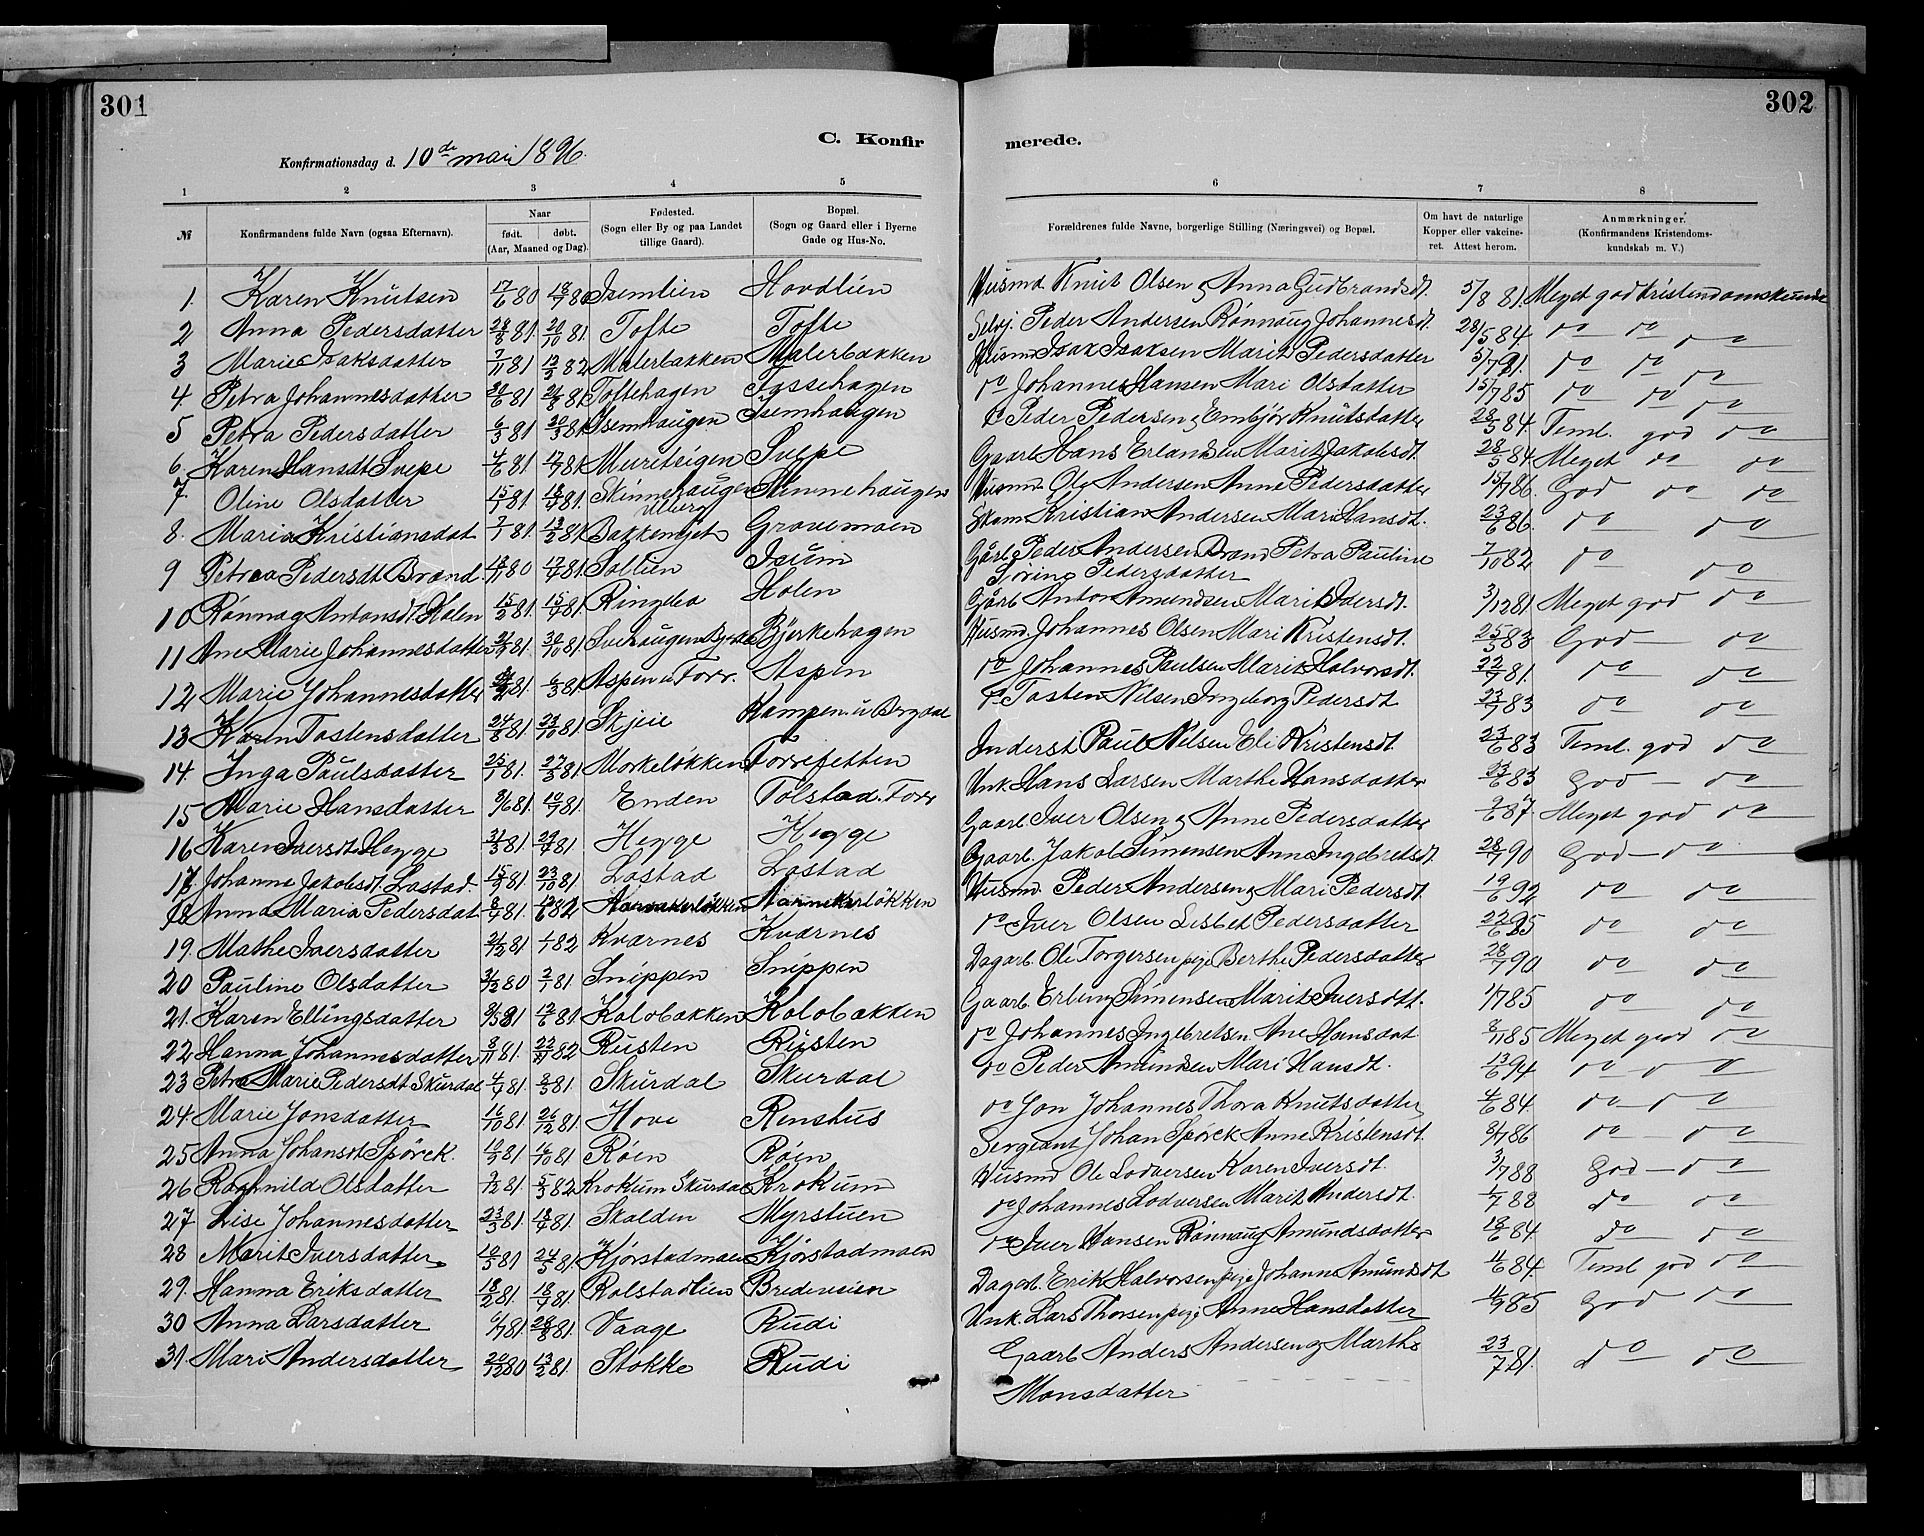 301
302
C. Konfir
merede.
Konfirmationsdag d. 10de mai 1896.
1 2 3 4 5 6 7 8
№ Konfirmandens fulde Navn (ogsaa Efternavn). Naar født. døbt. (Aar, Maaned og Dag). Fødested. (Sogn eller By og paa Landet tillige Gaard). Bopæl. (Sogn og Gaard eller i Byerne Gade og Hus-No. Forældrenes fulde Navne, borgerlige Stilling (Næringsvei) og Bopæl. Om havt de naturlige Kopper eller vakcineret. Attest herom. Anmærkninger. (Konfirmandens Kristendomskundskab m. V.)
1. Karen Knutsen 17/6 80 18/7 80 Isemlien Hovdlien Husmd Knut Olsen og Anna Gudbrandsdt. 5/8 81. Meget god Kristendomskunds
2 Anna Pedersdatter 28/8 81. 20/10 81. Tofte Tofte Selvj. Peder Andersen Rønnaug Johannesdt. 28/5 84 do do do
3 Marie Isaksdatter 7/11 81 12/2 82 Malerbakken Malerbakken Husmd Isak Isaksen Marit Pedersdatter do do do
4 Petra Johannesdatter 81 81 Toftehagen Fossehagen do Johannes Hansen Mari Olsdatter 15/7 85 do do do
5 Petra Pedersdatter 6/3 81 20/3 81 Isemhaugen Isemhaugen do Peder Pedersen og Embjør Knutsdatter 28/5 84 Teml. god do
6. Karen Hansdt Svepe 4/6 81 17/7 81 Muritsigen Svepe Gaarb Hans Erlandsen Marit Jakobsdt. 28/5 84. Meget do do
7. Oline Olsdatter 15/5 81 81. Skinnehaugen Skinnehaugen Husmd. Ole Andersen Anne Pedersdatter 15/7 86. God do do
8. Maria Kristiansdat 81. 13/2 81. Bakkenget Gravemoen Skom Kristian Andersen Mari Hansdt. 23/6 86. do do
9 Petrea Pedersdt Brænd 80 17/7 81. Sollien Isum Gårb. Peder Andersen Brænd Petra Pauline Sørine Pedersdatter 7/10 82 do do
10 Rønnog Antonsdt Holen 15/2 81. 15/4 81. Ringebo Holen Gårb Anton Amundsen Mari Iversdt. 3/12 81 Meget god do
11 Ane Marie Johannesdatter 81. 30/10 81. Bjørkehagen Husmd. Johannes Olsen Mari Kristensdt. 25/5 83 God do
12 Marie Johannesdatter 81. 6/3 81 Aspen u Forr. Aspen do Johannes Paulsen Marit Halvorsdt. 22/7 81. do do
13 Karen Tostensdatter 24/8 81. 23/10 81. Skjeie Kampen u Bergdal do Tosten Nilsen Ingeborg Pedersdt 23/7 83 do do
14. Inga Paulsdatter 25/1 81. 27/3 81 Morkeløkken Forrefetten Inderst Paul Nilsen Eli Kristensdt. 23/6 83 Teml. god do
15 Marie Hansdatter 8/6 81. 10/7 81. Enden Tolstad. Forr Unk. Hans Larsen Marthe Hansdatter 23/6 83 God do
16 Karen Iversdt Hegge 31/3 81. 29/4 81 Hegge Hegge Gaarb. Iver Olsen og Anne Pedersdatter 87. Meget god do
17 Johanne Jakobsdt Løstad. 15/9 81 23/10 81 Løstad Løstad Gaarb. Jakob Simensen Anne Ingebretsdt. 28/7 90 God do
18 Anna Maria Pedersdat 81. 82 Husmd Peder Andersen og Mari Pedersdt. 19/6 92 do do
19. Mathe Iversdatter 21/12 81 82 Kværnes Kværnes do Iver Olsen Lisbet Pedersdatter 22/6 95 do do
20 Pauline Olsdatter 31/12 80 2/1 81. Snippen Snippen Dagarb. Ole Torgersen pige Berthe Pedersdatter 28/7 90 do do
21. Karen Ellingsdatter 9/5 81 12/6 81 Kolobakken Kolobakken Gaarb. Erling Simensen Marit Iversdt. 1/7 85 do do
22 Hanna Johannesdatter 8/11 81. 22/11 82 Rusten Rusten do Johannes Ingebretsen Ane Hansdat 8/11 85 Meget god do
23 Petra Marie Pedersdt Skurdal 4/1 81 81. Skurdal Skurdal do Peder Amundsen Mari Hansdt. 13/6 94 do do
24. Marie Jonsdatter 16/10 81 26/12 81. Hove Renshus do Jon Johannes Thora Knutsdatter 4/6 84. do do
25 Anna Johansdt Spörck. 10/9 81 16/10 81 Røen Røen Sergeant Johan Spörck Anne Kristensdt. 8/7 86 do do
26 Ragnhild Olsdatter 9/12 81. 5/3 82 Krokum Skurdal Krokum Husmd Ole Lodversen Karen Iversdt. 3/7 88 God do
27 Lise Johannesdatter 23/3 81. 18/4 81. Skolden Myrstuen do Johannes Lodversen Marit Andersdt. 88 do do
28 Marit Iversdatter 10/5 81 24/5 81. Kjørstadmoen Kjørstadmoen do Iver Hansen Rønnaug Amundsdatter 18/6 84 do do
29. Hanna Eriksdatter 18/2 81. 18/4 81. Rolstadlien Bredeveien Dagarb. Erik Halvorsen pige Johanne Amundsdt 4/6 84. Teml god do
30 Anna Larsdatter 81. 28/8 81. Vaage Rudi Unk. Lars Thorsen pige Anne Hansdatter 4/9 85 God do
31. Mari Andersdatter 20/12 80 13/2 81. Stokke Rudi Gaarb Anders Andersen og Marthe Monsdatter 23/7 81. do do